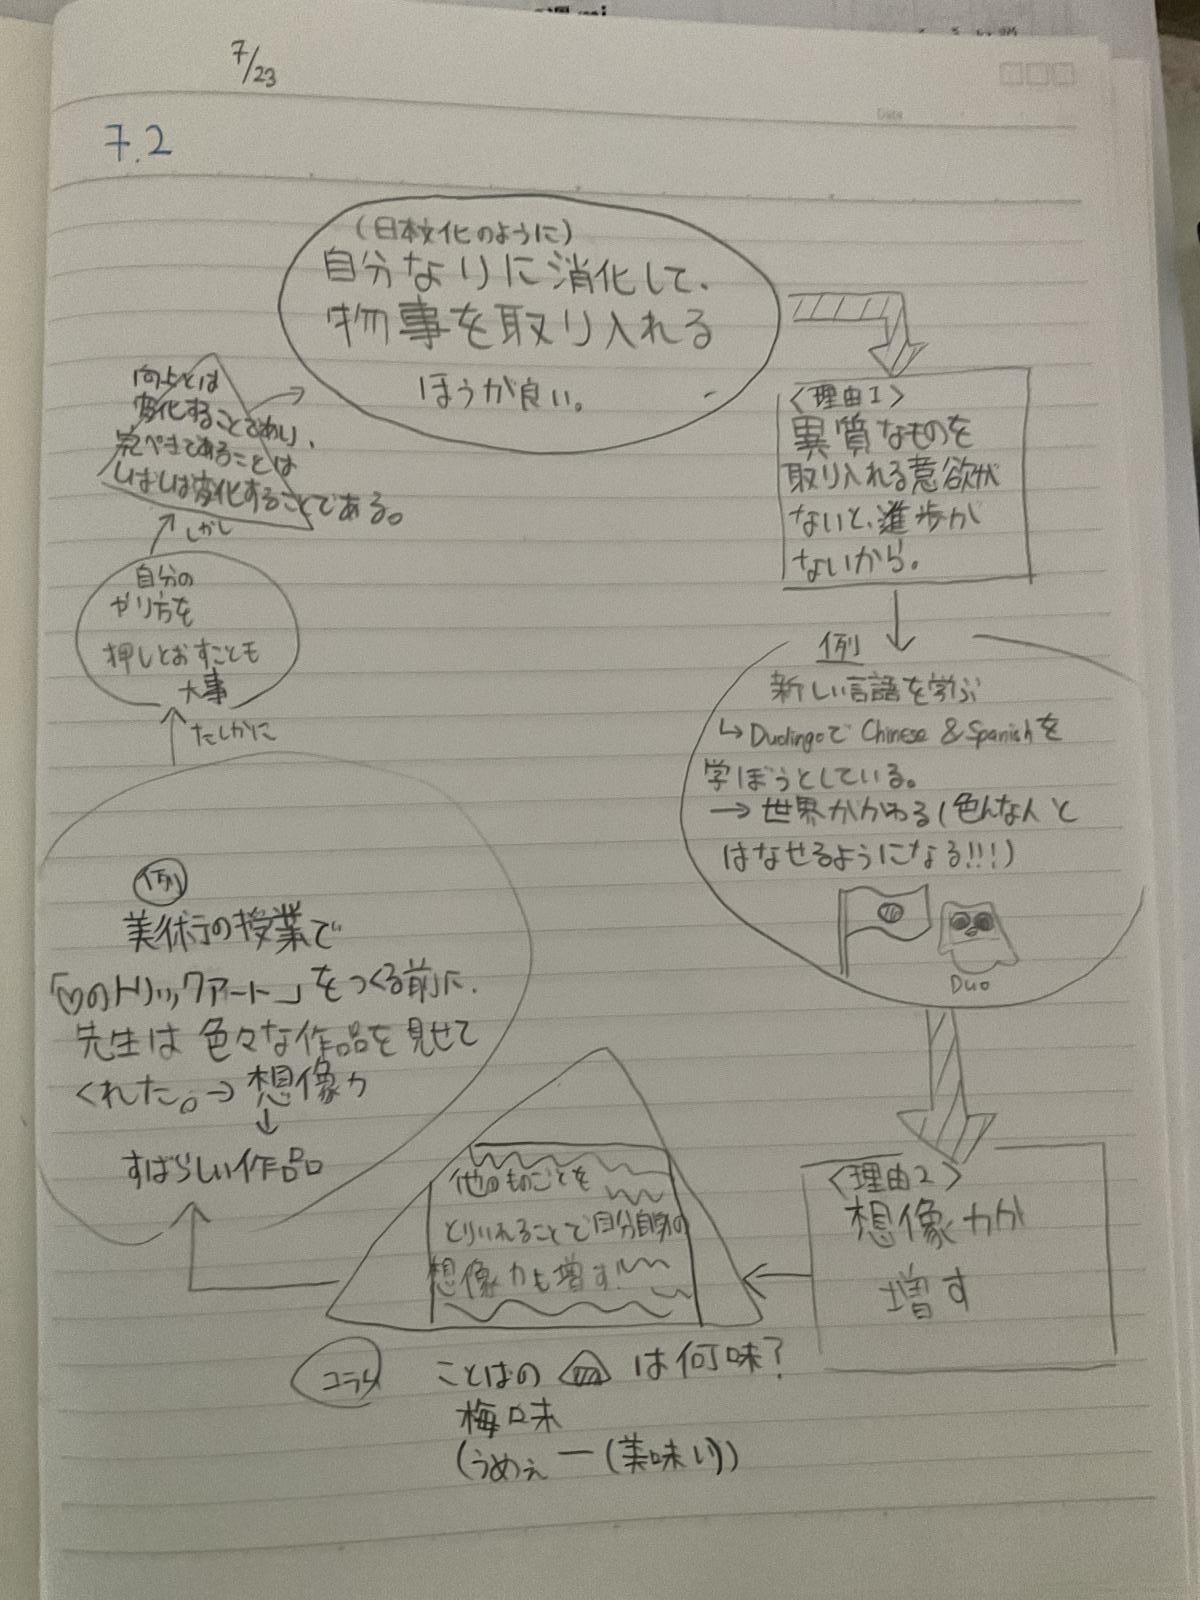 7/23
7.2
Date
(日本文化のように)
自分なりに消化して、
物事を取り入れる
ほうが良い。
<理由1>
異質なものを
取り入れる意欲が
ないと、進歩が
ないから。
例
新しい言語を学ぶ
↳ DuolingoでChinese & Spanishを
学ぼうとしている。
→ 世界がかわる(色んな人と
はなせるようになる!!!)
Duo
<理由2>
想像力が
増す
他のものごとを
とりいれることで自分自身の
想像力も増す!
例
美術の授業で
「♡のトリックアート」をつくる前に、
先生は色々な作品を見せて
くれた。→ 想像力
↓
すばらしい作品
たしかに
自分の
やり方を
押しとおすことも
大事
しかし
向上とは
変化することであり、
完ぺきであることは
しばしば変化することである。
コラム
ことばの は何味?
梅味
(うめぇー(美味い))